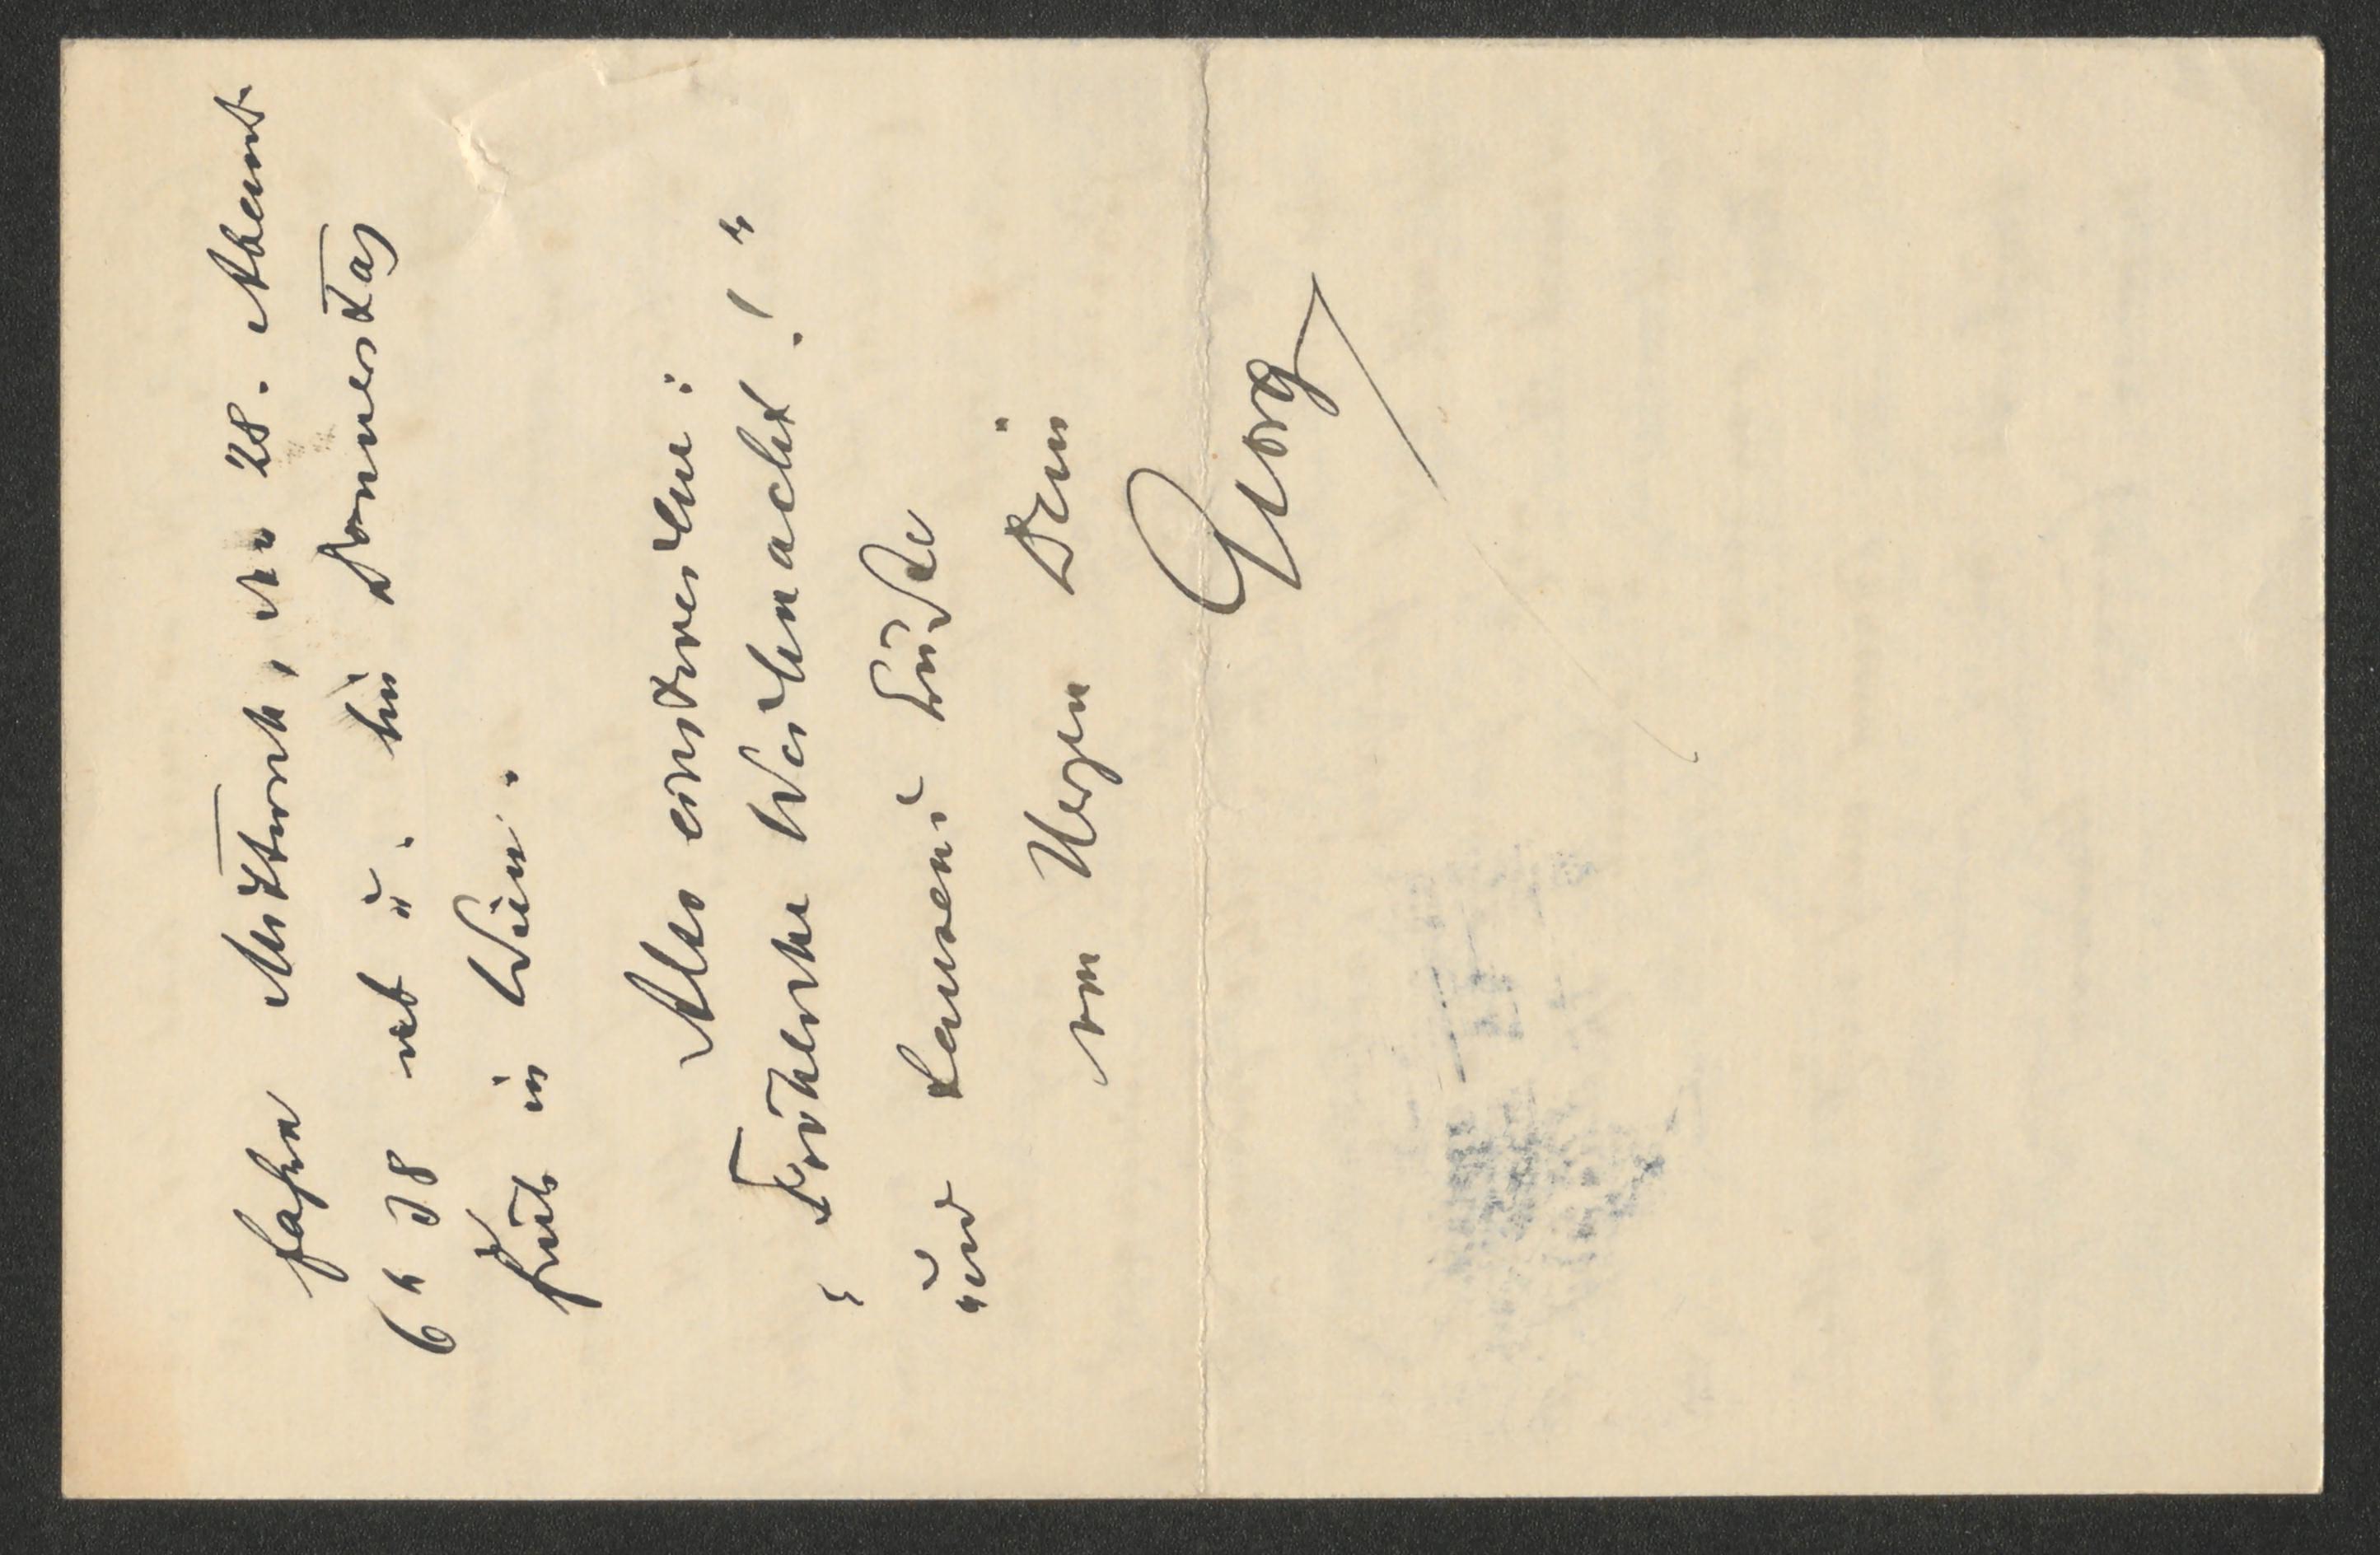 fahre Mittwoch, den 28. Abend
6 h 38 ab u. bin Donnerstag
früh in Wien.
Also einstweilen:
„Fröhliche Weihnacht!"
und tausend Küsse
von Herzen Dein
Georg